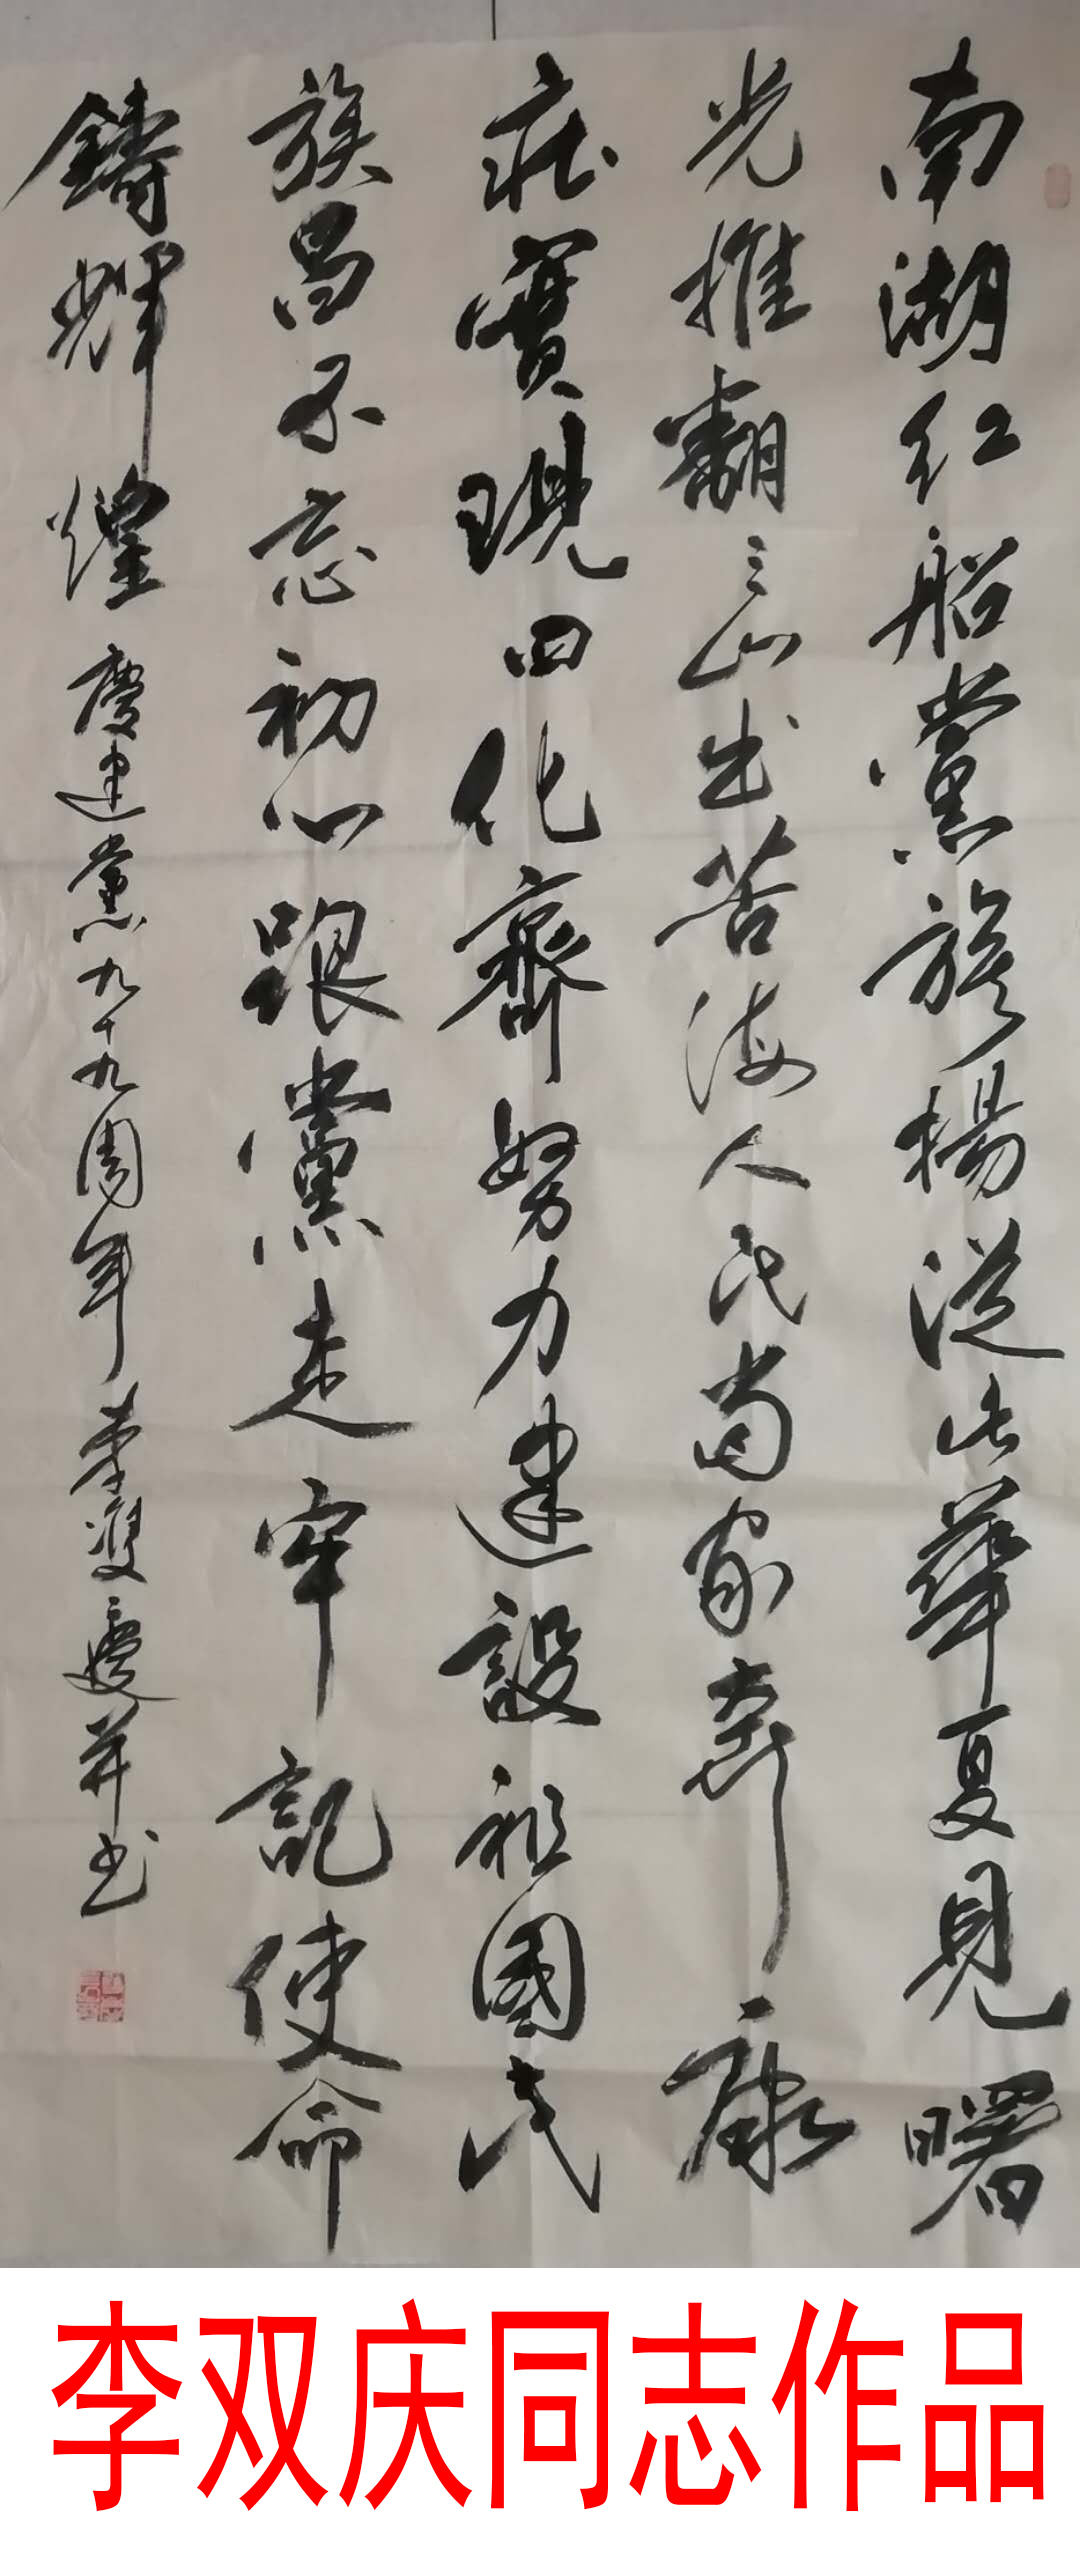 南湖红船黨旗揚從此華夏見曙
光推翻三山出苦海人民當家奔康
庄實現四化齊努力建設祖國民
族昌不忘初心跟黨走牢記使命
鑄輝煌 慶建黨九十九周年 李雙慶并书
李双庆同志作品